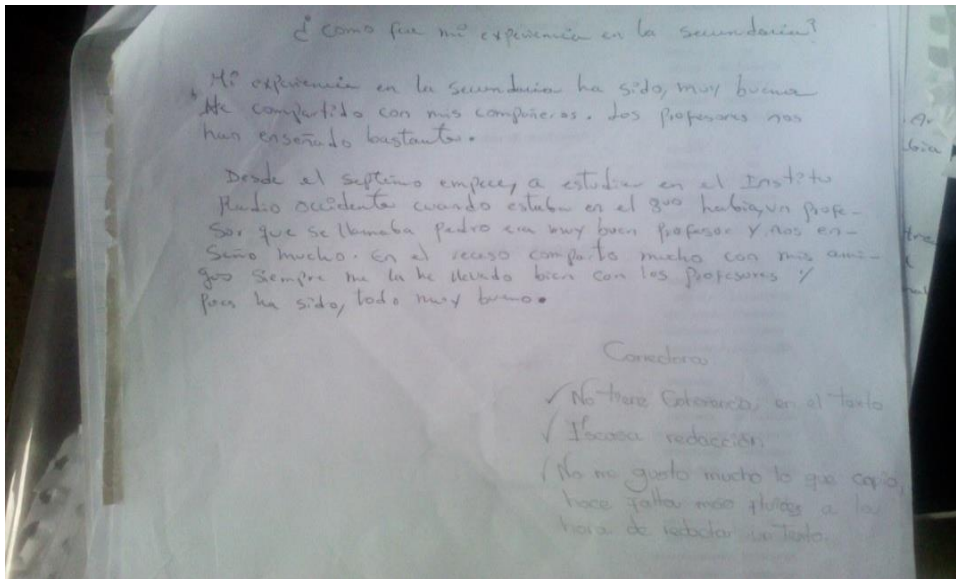 ¿como fue mi experiencia en la secundaria?
Mi experiencia en la secundaria ha sido, muy buena
He compartido con mis compañeros. Los profesores nos
han enseñado bastante.
Desde el septimo empece, a estudiar en el Institu
Radio occidente cuando estaba en el 9no habia, un profe-
sor que se llamaba pedro era muy buen profesor y nos en-
seño mucho. En el receso comparto mucho con mis ami-
gos siempre me la he llevado bien con los profesores y
pues ha sido, todo muy bueno.
Conectores
✓ No tiene Coherencia, en el texto
✓ Escasa redacción
✓ No me gusto mucho lo que copio,
hace falta más fluides a la
hora de redactar un Texto.